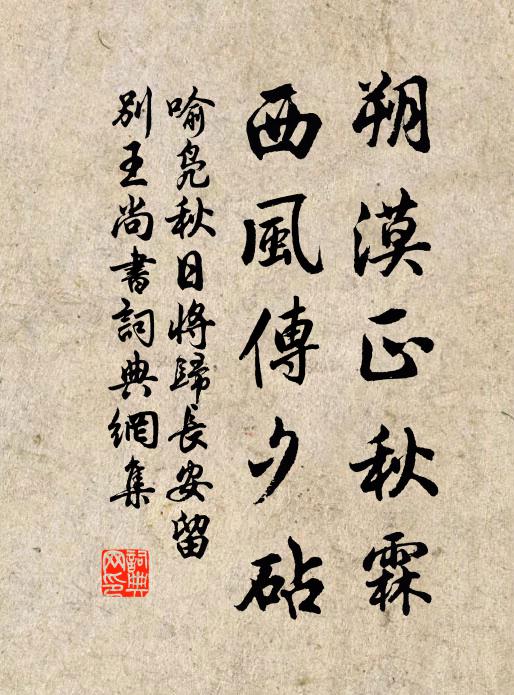 朔漠正秋霖
西風傳夕砧
喻凫秋日將歸長安留
別王尚書詞典網集
詞典
网印